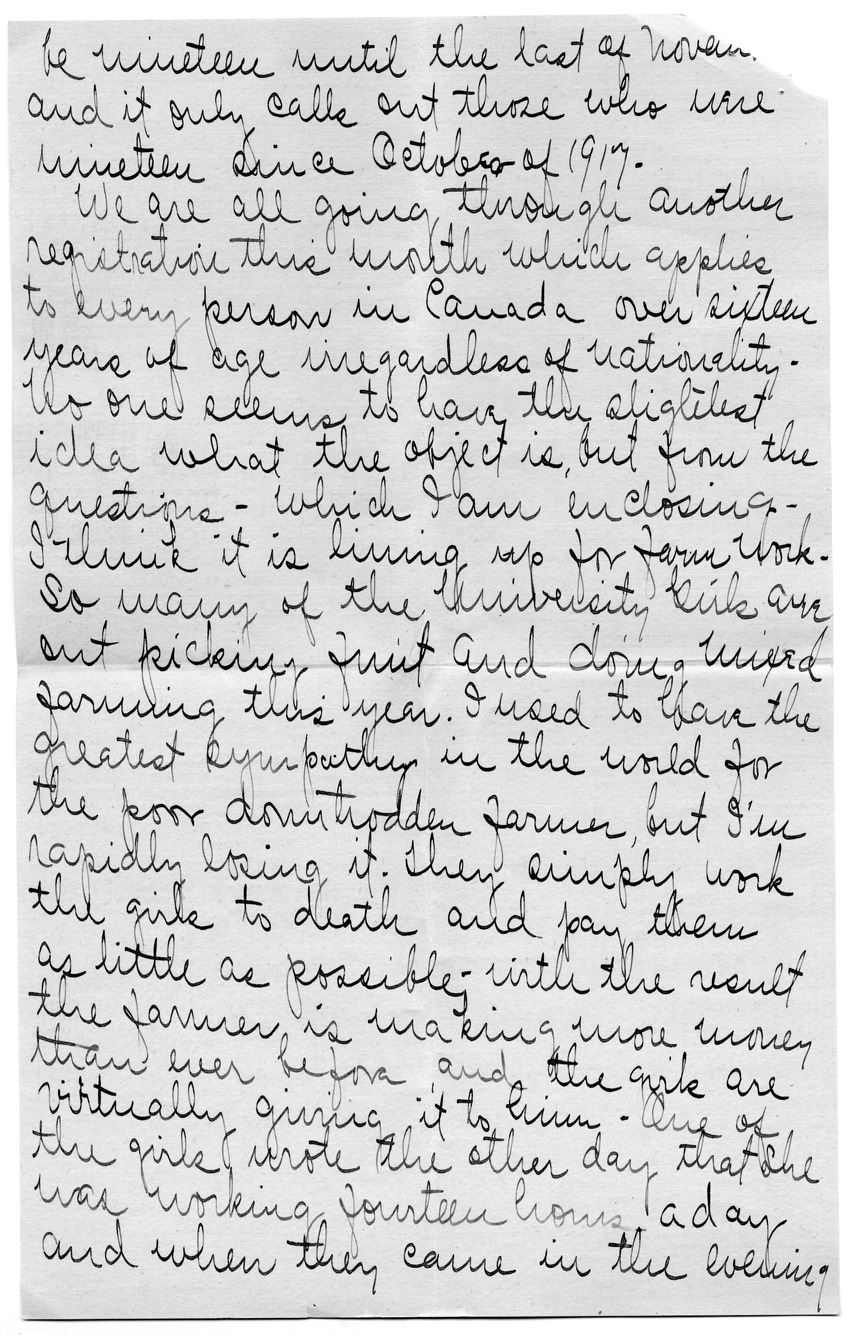 be nineteen until the last of Novem
and it only calls out those who were
nineteen since October of 1917.
We are all going through another
registration this month which applies
to every person in Canada over sixteen
years of age irregardless of nationality.
No one seems to have the slightest
idea what the object is, but from the
questions - which I am enclosing -
I think it is lining up for farm work.
So many of the University Girls are
out picking fruit and doing mixed
farming this year. I used to have the
greatest sympathy in the world for
the poor downtrodden farmer, but I'm
rapidly losing it. They simply work
the girls to death and pay them
as little as possible, with the result
the farmer is making more money
than ever before and the girls are
virtually giving it to him - One of
the girls wrote the other day that she
was working fourteen hours a day
and when they came in the evening